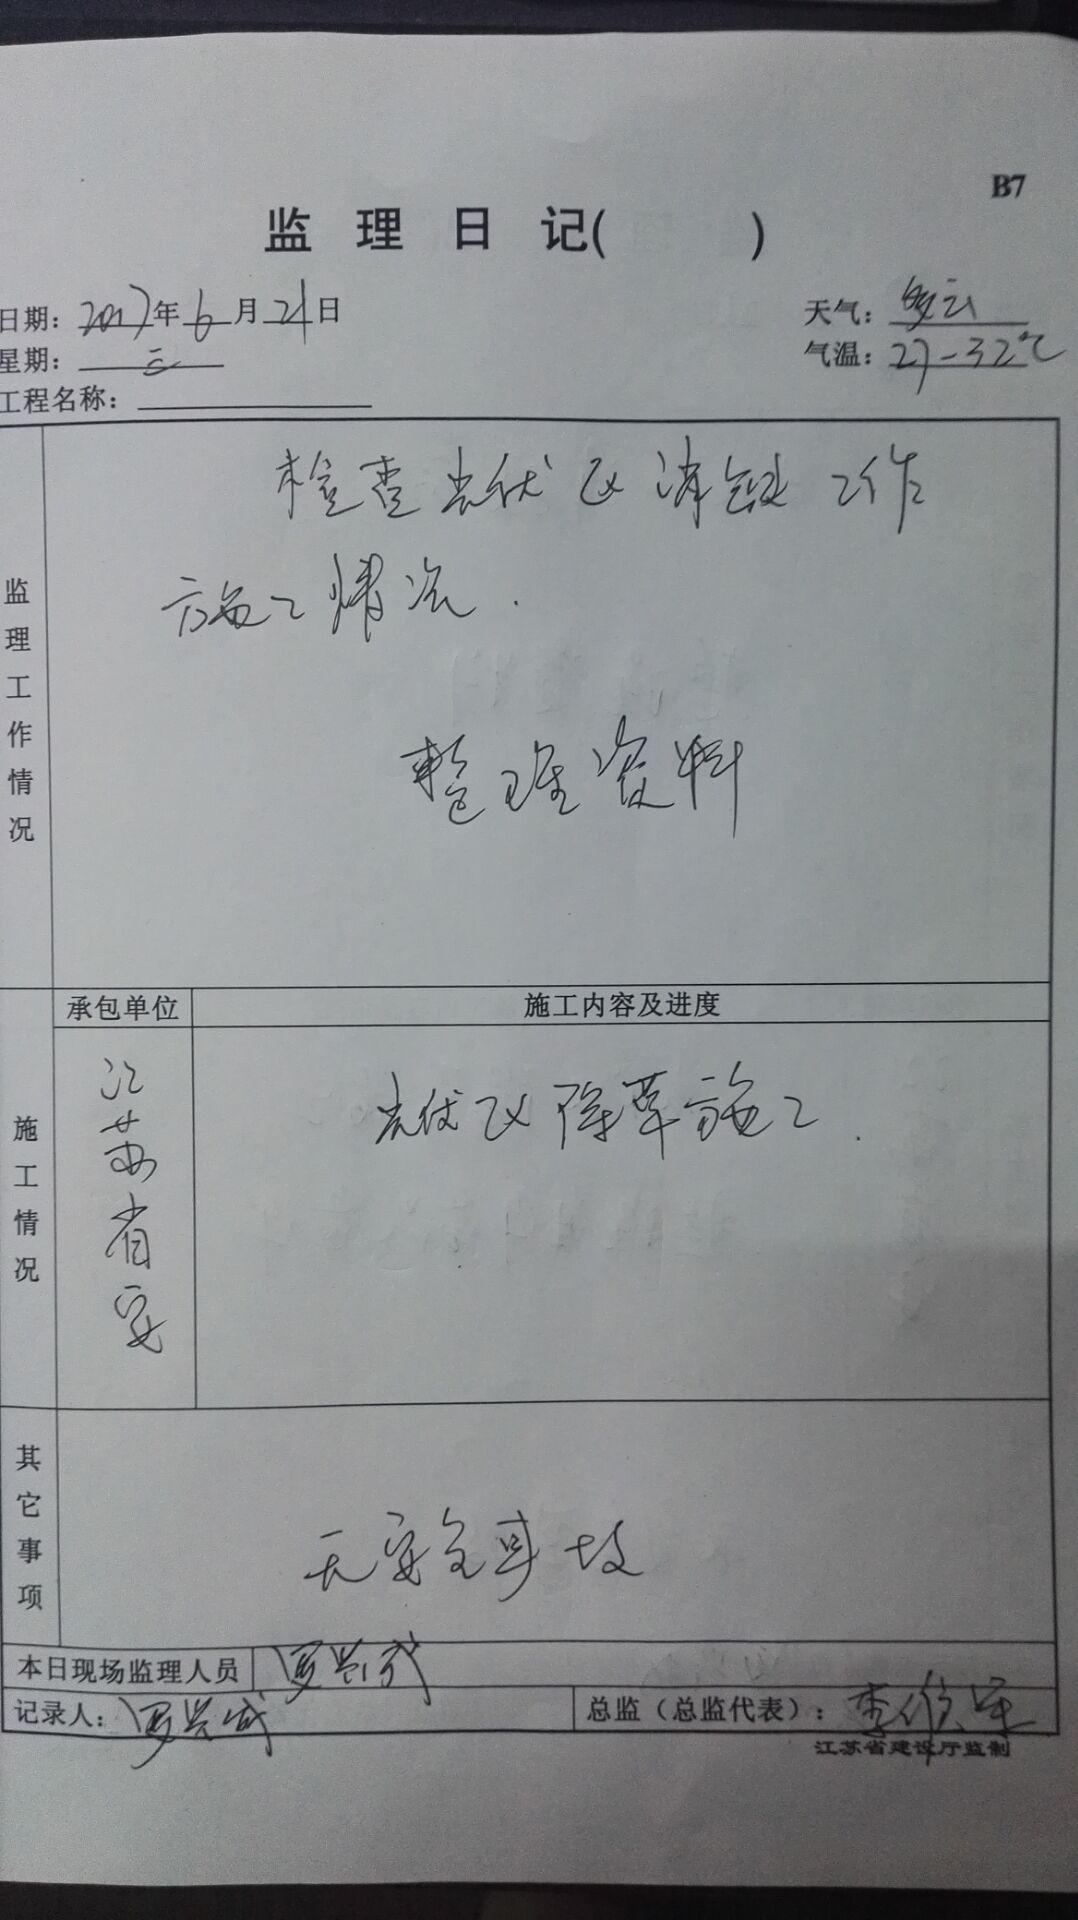 B7
监理日记( )
日期：2017年6月21日
天气：多云
星期：三
气温：27-32℃
工程名称：
监理工作情况
检查光伏区消缺工作
施工情况.
整理资料
承包单位
施工内容及进度
施工情况
江苏省安
光伏区除草施工.
其它事项
无安全事故
本日现场监理人员
记录人：
总监（总监代表）：李
江苏省建设厅监制